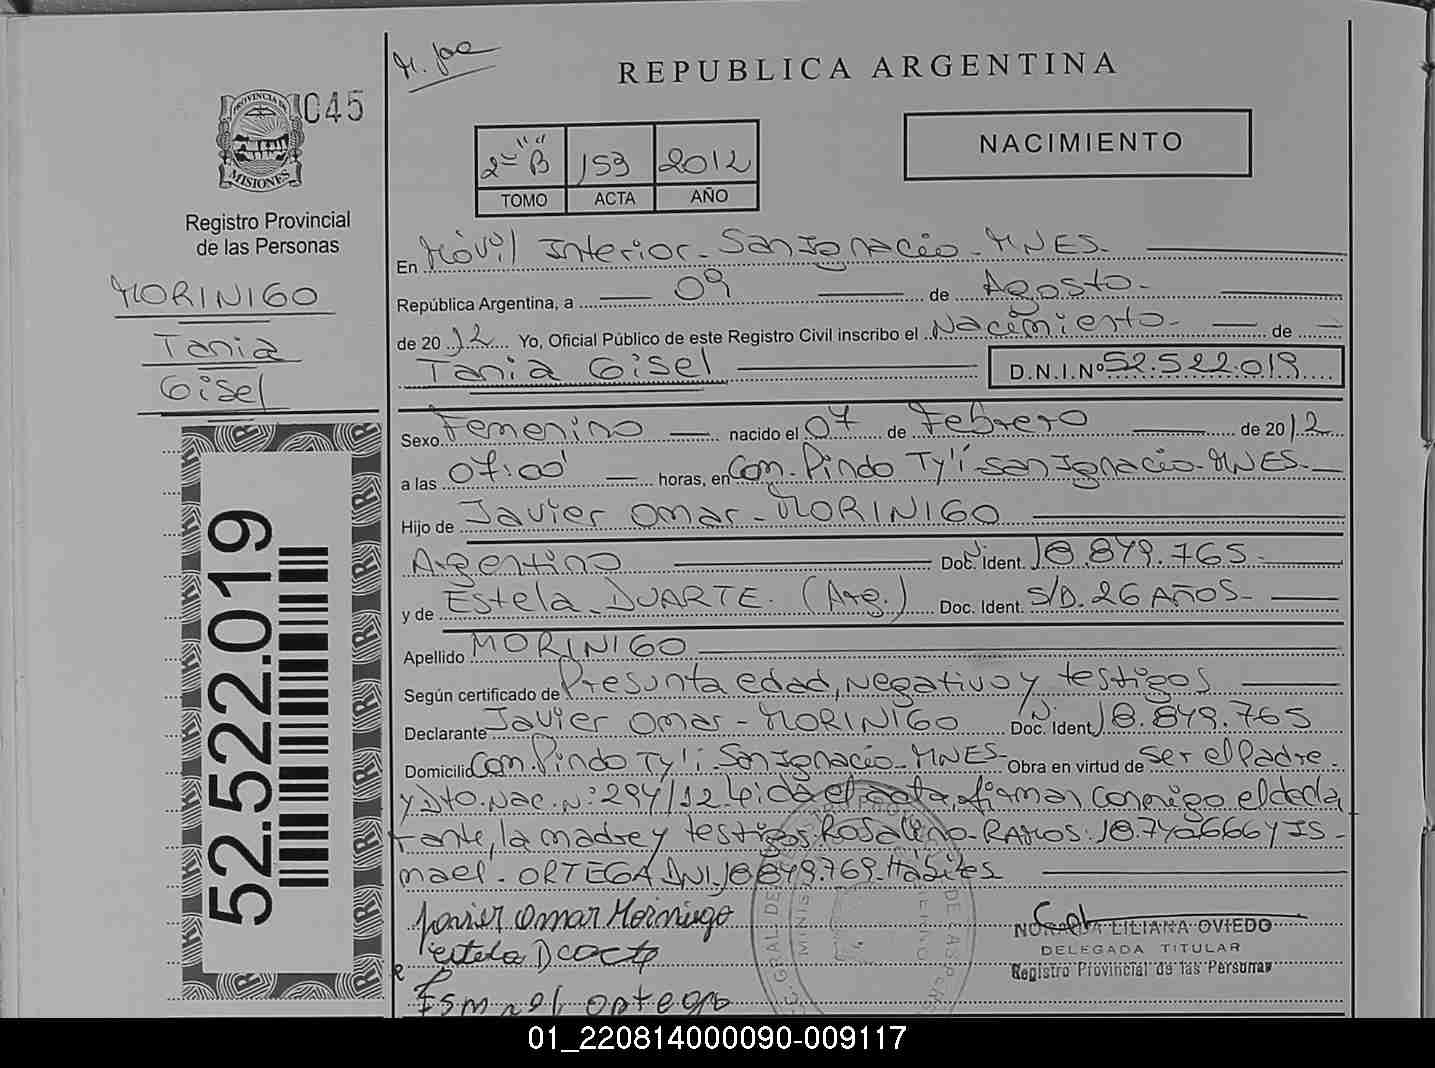 M. Joa
REPUBLICA ARGENTINA
045
PROVINCIA DE
MISIONES
Registro Provincial
de las Personas
NACIMIENTO
2º "B" 153 2012
TOMO ACTA AÑO
MORINIGO
Tania
Gisel
52.522.019
En Móvil Interior - San Ignacio - MNES -
República Argentina, a 09 de Agosto -
de 2012 Yo, Oficial Público de este Registro Civil inscribo el Nacimiento - de
Tania Gisel D.N.I.Nº 52.522.019
Sexo Femenino nacido el 07 de Febrero de 2012
a las 07:00' horas, en Com. Pindo Ty'i - San Ignacio - MNES -
Hijo de Javier Omar - MORINIGO
Argentino Doc. Ident. 18.849.765 -
y de Estela - DUARTE. (Arg.) Doc. Ident. S/D. 26 AÑOS -
Apellido MORINIGO
Según certificado de Presunta edad, Negativo y testigos
Declarante Javier Omar - MORINIGO Doc. Ident. 18.849.765
Domicilio Com. Pindo Ty'i - San Ignacio - MNES - Obra en virtud de ser el Padre -
y Dto. Nac. Nº 294/12 Leida el acta, firman conmigo el decla
rante, la madre y testigos Rosalino - RAMOS: 18.740.666 y IS -
mael - ORTEGA DNI. 18.849.769. Hábiles
Javier Omar Moriniugo
NORMA LILIANA OVIEDO
DELEGADA TITULAR
Registro Provincial de las Personas
Ismael ortega
01_220814000090-009117